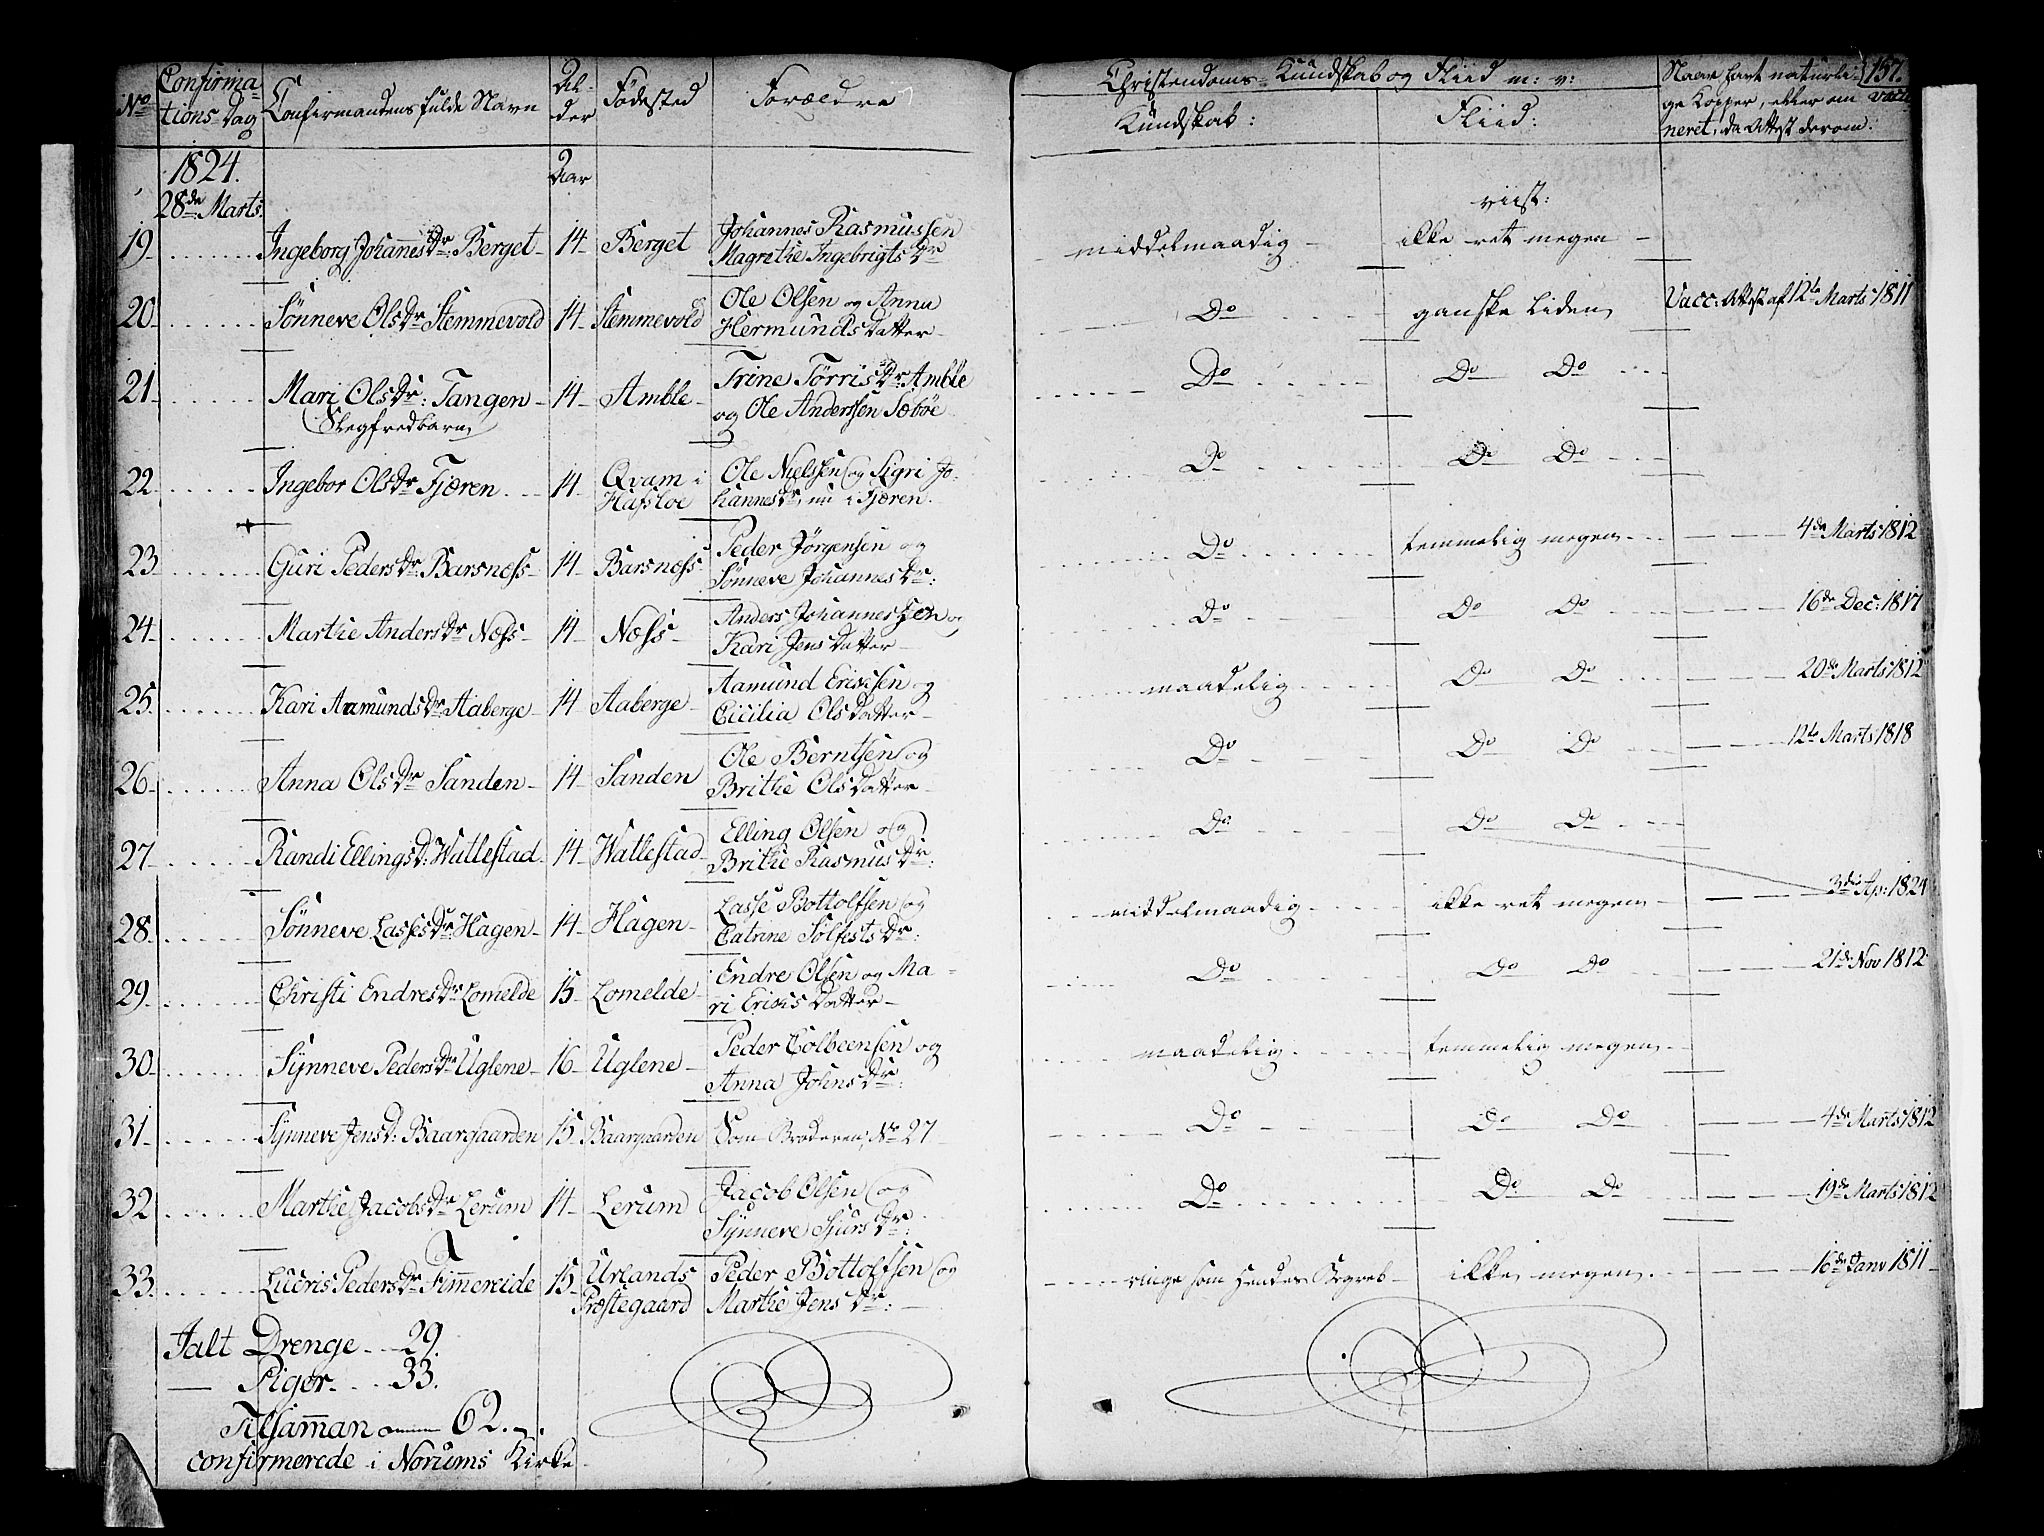 No | Confirmations Dag | Confirmandens fulde Navn | Alder | Fødested | Forældre | Christendoms-Kundskab og Fliid m: v: | 157.
Kundskab: | Fliid: | Naar havt naturlige Kopper, eller om vaccineret, da Attest derom:
1824. | Aar
28de Marts. | viist:
19 | Ingeborg JohanesDr: Berget | 14 | Berget | Johannes Rasmussen Magrethe IngebrigtsDr | middelmaadig | ikke ret megen
20 | Sønneve OlsDr Stemmevold | 14 | Stemmevold | Ole Olsen og Anna Hermundsdatter | Do | ganske liden | Vacc: Attest af 12te Marts 1811
21 | Mari OlsDr: Tangen (Slegfredbarn) | 14 | Amble | Trine TørrisDr Amble og Ole Anderssen Sæbøe | Do | Do Do
22 | Ingebor OlsDr Fjæren | 14 | Qvam i Hafsloe | Ole Nielssen og Sigri JohannesDr, nu i Fjæren | Do | Do Do
23 | Guri PedersDr: Barsness | 14 | Barsness | Peder Jørgensen og Sønneve JohannesDr: | Do | temmelig megen | 4de Marts 1812
24 | Marthe AndersDr Næss | 14 | Næss | Anders Johannessen og Kari Jensdatter | Do | Do Do | 16de Dec: 1817
25 | Kari AamundsDr Aaberge | 14 | Aaberge | Aamund Erikssen og Cicilia Olsdatter | maadelig | Do Do | 20de Marts 1812
26 | Anna OlsDr Sanden | 14 | Sanden | Ole Berntsen og Brithe Olsdatter | Do | Do Do | 12te Marts 1818
27 | Randi EllingsD: Wallestad | 14 | Wallestad | Elling Olsen og Brithe RasmusDr: | Do | Do Do
28 | Sønneve LassesDr Hagen | 14 | Hagen | Lasse Bottolfsen og Catrine SølfestsDr: | middelmaadig | ikke ret megen | 3die Ap: 1824
29 | Christi EndresDr Lomelde | 15 | Lomelde | Endre Olsen og Mari Eriksdatter | Do | Do Do | 21de Nov 1812
30 | Synneve PedersDr Uglene | 16 | Uglene | Peder Colbeensen og Anna JohnsDr: | maadelig | temmelig megen
31 | Synneve JensD: Baargaarden | 15 | Baargaarden | Som Broderen, No 27 | Do | Do Do | 4de Marts 1812
32 | Marthe JacobsDr Lerum | 14 | Lerum | Jacob Olsen og Synneve SjursDr: | Do | Do Do | 19de Marts 1812
33 | Lucris PedersDr Fimmereide | 15 | Urlands Præstegaard | Peder Bottolfsen og Marthe JensDr: | ringe som hendes Begreb | ikke megen | 16de Janv 1811
Ialt Drenge 29.
— Piger 33.
Tilsam̄man 62.
confirmerede i Norums Kirke